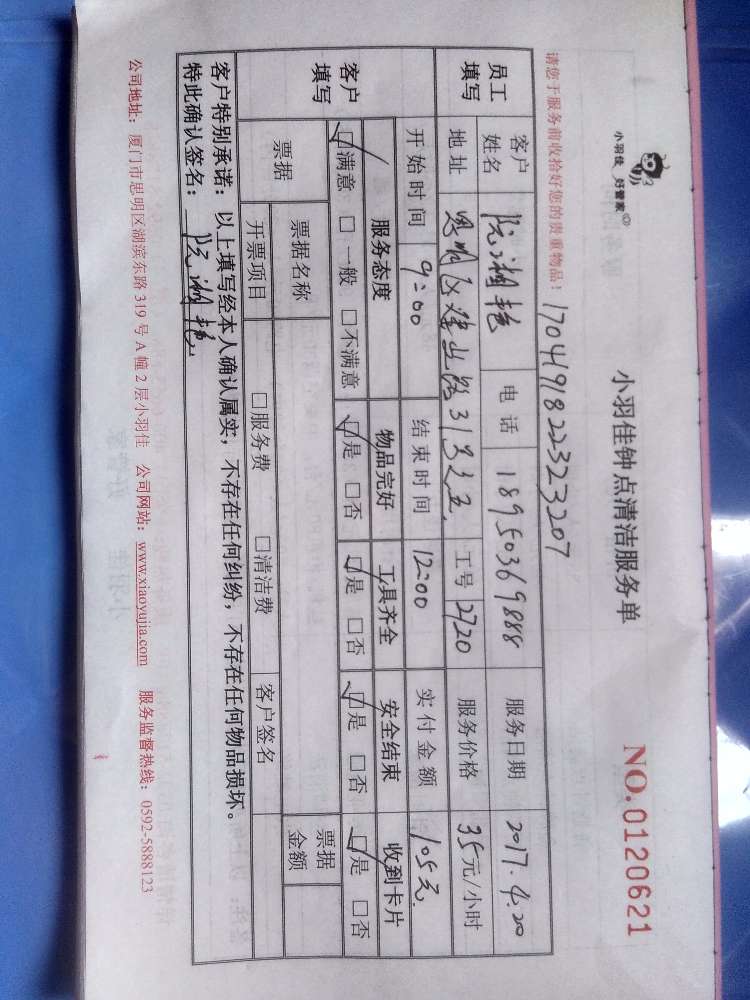 小羽佳 好管家®
小羽佳钟点清洁服务单
NO.0120621
请您于服务前收拾好您的贵重物品！ 1704191822323207
员工填写 客户姓名 阮湘艳 电话 18950369888 服务日期 2017.4.20
地址 思明区 路31号之五 工号 2720 服务价格 35元/小时
开始时间 9:00 结束时间 12:00 实付金额 105元
客户填写 服务态度 物品完好 工具齐全 安全结束 收到卡片
☑满意 □一般 □不满意 ☑是 □否 ☑是 □否 ☑是 □否 ☑是 □否
票据 票据名称 票据金额
开票项目 □服务费 □清洁费 客户签名
客户特别承诺：以上填写经本人确认属实，不存在任何纠纷，不存在任何物品损坏。
特此确认签名：阮湘艳
公司地址：厦门市思明区湖滨东路319号A幢2层小羽佳 公司网站：www.xiaoyujia.com 服务监督热线：0592-5888123